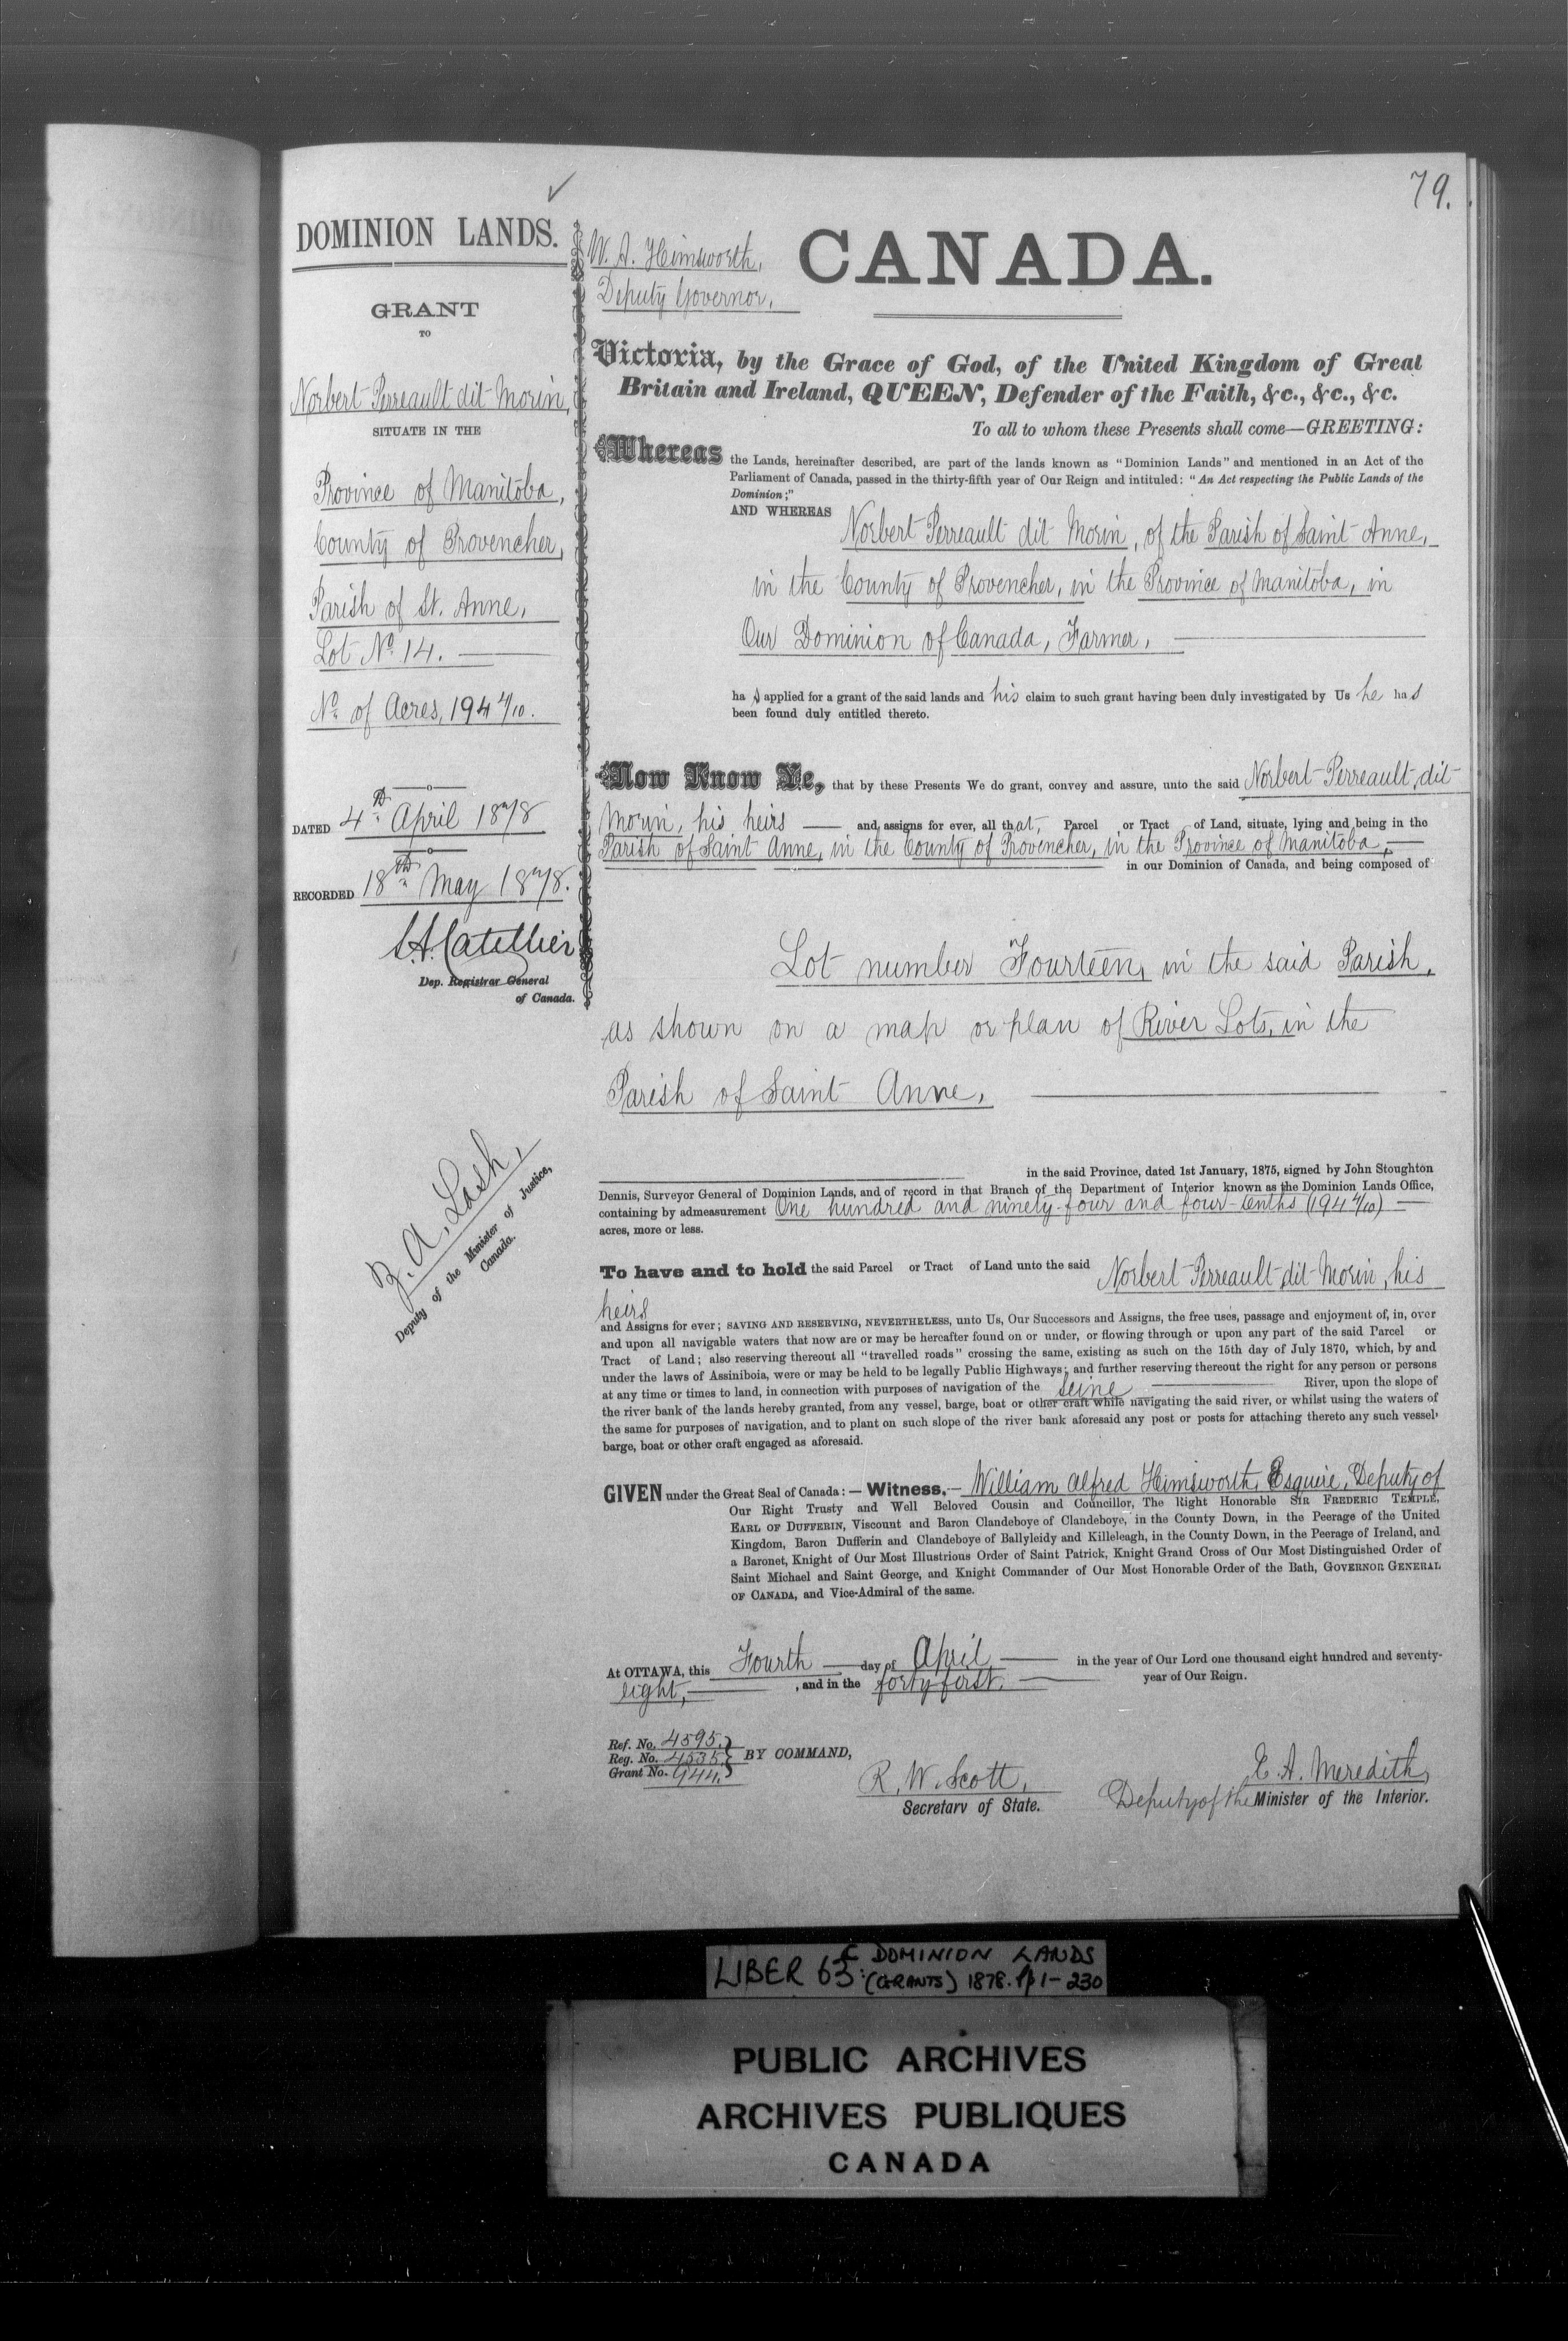 79.
DOMINION LANDS.
GRANT
TO
Norbert Perreault dit Morin,
SITUATE IN THE
Province of Manitoba,
County of Provencher,
Parish of St. Anne,
Lot No. 14.
No. of Acres, 194 4/10.
DATED 4th April 1878
RECORDED 18th May 1878.
Dep. Registrar General
of Canada.
Z. A. Lash,
Deputy of the Minister of Justice,
Canada.
W. A. Himsworth,
Deputy Governor,
CANADA.
Victoria, by the Grace of God, of the United Kingdom of Great
Britain and Ireland, QUEEN, Defender of the Faith, &c., &c., &c.
To all to whom these Presents shall come—GREETING:
Whereas the Lands, hereinafter described, are part of the lands known as "Dominion Lands" and mentioned in an Act of the
Parliament of Canada, passed in the thirty-fifth year of Our Reign and intituled: "An Act respecting the Public Lands of the
Dominion;"
AND WHEREAS Norbert Perreault dit Morin, of the Parish of Saint Anne,
in the County of Provencher, in the Province of Manitoba, in
Our Dominion of Canada, Farmer,
has applied for a grant of the said lands and his claim to such grant having been duly investigated by Us he has
been found duly entitled thereto.
Now Know Ye, that by these Presents We do grant, convey and assure, unto the said Norbert Perreault dit
Morin, his heirs and assigns for ever, all that Parcel or Tract of Land, situate, lying and being in the
Parish of Saint Anne, in the County of Provencher, in the Province of Manitoba,
in our Dominion of Canada, and being composed of
Lot number Fourteen, in the said Parish,
as shown on a map or plan of River Lots, in the
Parish of Saint Anne,
in the said Province, dated 1st January, 1875, signed by John Stoughton
Dennis, Surveyor General of Dominion Lands, and of record in that Branch of the Department of Interior known as the Dominion Lands Office,
containing by admeasurement One hundred and ninety-four and four-tenths (194 4/10)
acres, more or less.
To have and to hold the said Parcel or Tract of Land unto the said Norbert Perreault dit Morin, his
heirs
and Assigns for ever; SAVING AND RESERVING, NEVERTHELESS, unto Us, Our Successors and Assigns, the free uses, passage and enjoyment of, in, over
and upon all navigable waters that now are or may be hereafter found on or under, or flowing through or upon any part of the said Parcel or
Tract of Land; also reserving thereout all "travelled roads" crossing the same, existing as such on the 15th day of July 1870, which, by and
under the laws of Assiniboia, were or may be held to be legally Public Highways; and further reserving thereout the right for any person or persons
at any time or times to land, in connection with purposes of navigation of the Seine River, upon the slope of
the river bank of the lands hereby granted, from any vessel, barge, boat or other craft while navigating the said river, or whilst using the waters of
the same for purposes of navigation, and to plant on such slope of the river bank aforesaid any post or posts for attaching thereto any such vessel,
barge, boat or other craft engaged as aforesaid.
GIVEN under the Great Seal of Canada:—Witness,—William Alfred Himsworth, Esquire, Deputy of
Our Right Trusty and Well Beloved Cousin and Councillor, The Right Honorable SIR FREDERIC TEMPLE,
EARL OF DUFFERIN, Viscount and Baron Clandeboye of Clandeboye, in the County Down, in the Peerage of the United
Kingdom, Baron Dufferin and Clandeboye of Ballyleidy and Killeleagh, in the County Down, in the Peerage of Ireland, and
a Baronet, Knight of Our Most Illustrious Order of Saint Patrick, Knight Grand Cross of Our Most Distinguished Order of
Saint Michael and Saint George, and Knight Commander of Our Most Honorable Order of the Bath, GOVERNOR GENERAL
OF CANADA, and Vice-Admiral of the same.
At OTTAWA, this Fourth day of April in the year of Our Lord one thousand eight hundred and seventy-
eight, , and in the forty-first. year of Our Reign.
Ref. No. 4595.
Reg. No. 4535. BY COMMAND,
Grant No. 944.
R. W. Scott,
Secretary of State.
E. A. Meredith,
Deputy of the Minister of the Interior.
LIBER 63C DOMINION LANDS
(GRANTS) 1878. pp 1-230
PUBLIC ARCHIVES
ARCHIVES PUBLIQUES
CANADA